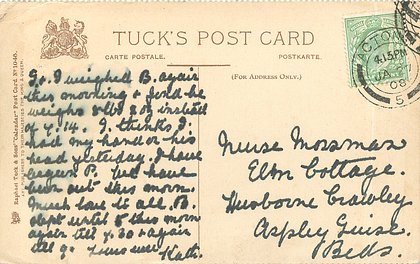 TUCK'S POST CARD
CARTE POSTALE.
POSTKARTE.
(FOR ADDRESS ONLY.)
ACTON
4.15 PM
JA
08
5
Raphael Tuck & Sons' "Calendar" Post Card Nº 1046.
So I weighed B. again
this morning & find he
weighs 8 lbs 2 oz instead
of 9.14. I think I
had my hand or his
head yesterday. I have
begun P. but have
been out this morn.
Much love to all. B.
slept until 5 this morn
again till 9.30 & again
till 9. Yours ever
Kath.
Nurse Mossman
Elm Cottage.
Husborne Crawley
Aspley Guise.
Beds.